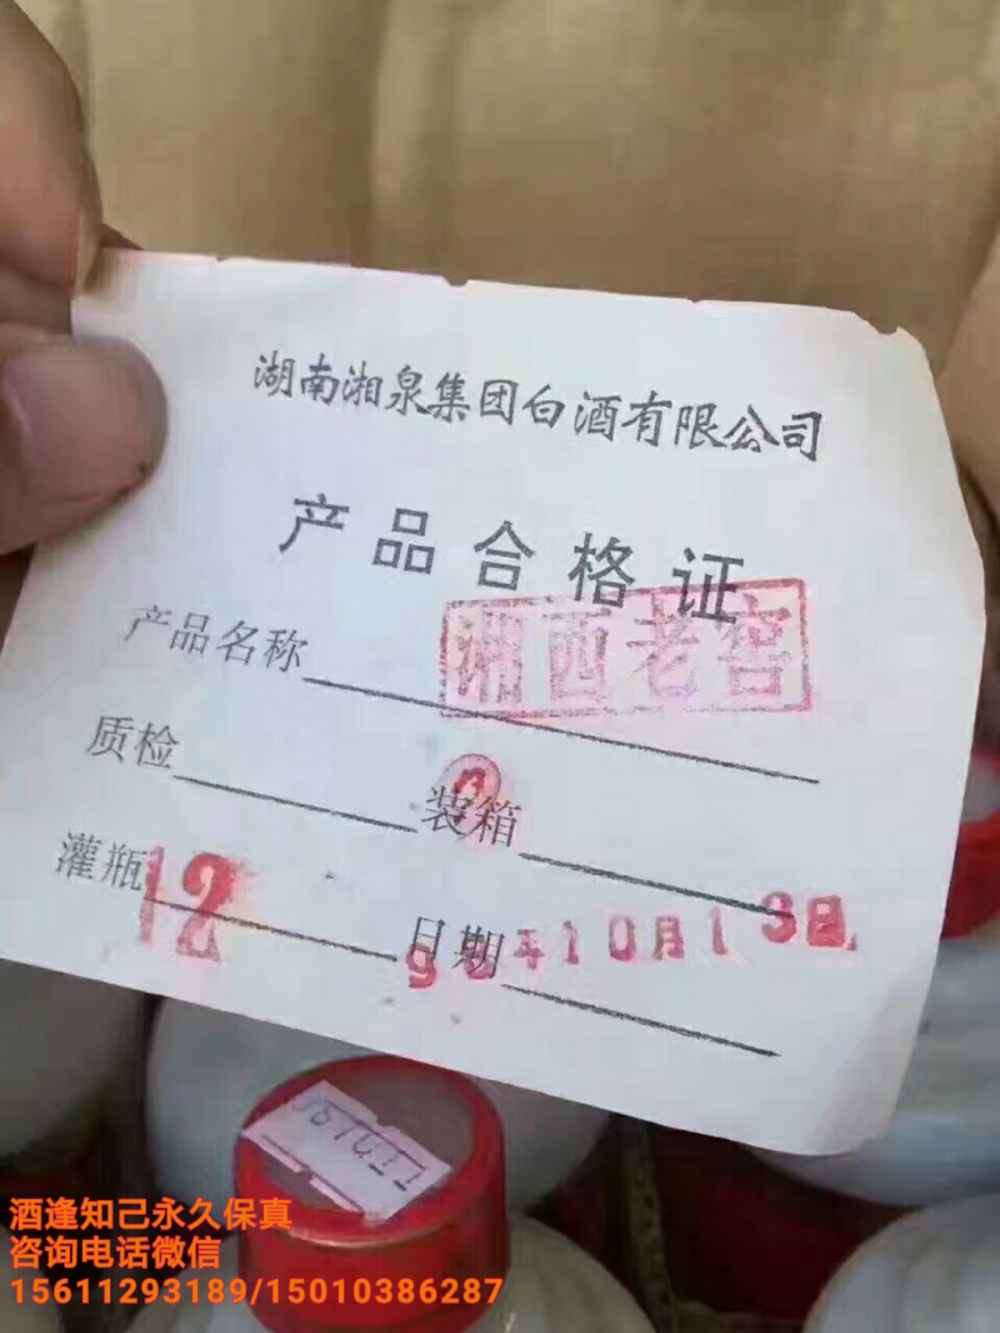 湖南湘泉集团白酒有限公司
产品合格证
产品名称 湘西老窖
质检 装箱
灌瓶 12 日期 98年10月13日
酒逢知己永久保真
咨询电话微信
15611293189/15010386287